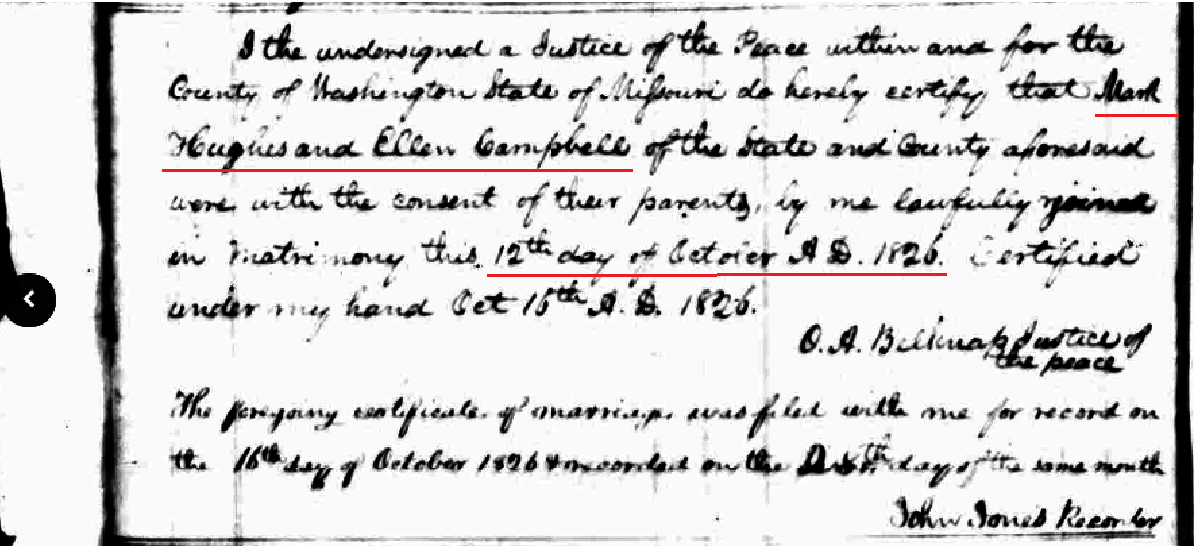 I the undersigned a Justice of the Peace within and for the
County of Washington State of Missouri do hereby certify that Mark
Hughes and Ellen Campbell of the State and County aforesaid
were with the consent of their parents, by me lawfully joined
in Matrimony this 12th day of October A.D. 1826. Certified
under my hand Oct 15th A.D. 1826.
O. A. Belknap Justice of
the peace
The foregoing certificate of marriage was filed with me for record on
the 16th day of October 1826 & recorded on the day of the same month
John Jones Recorder